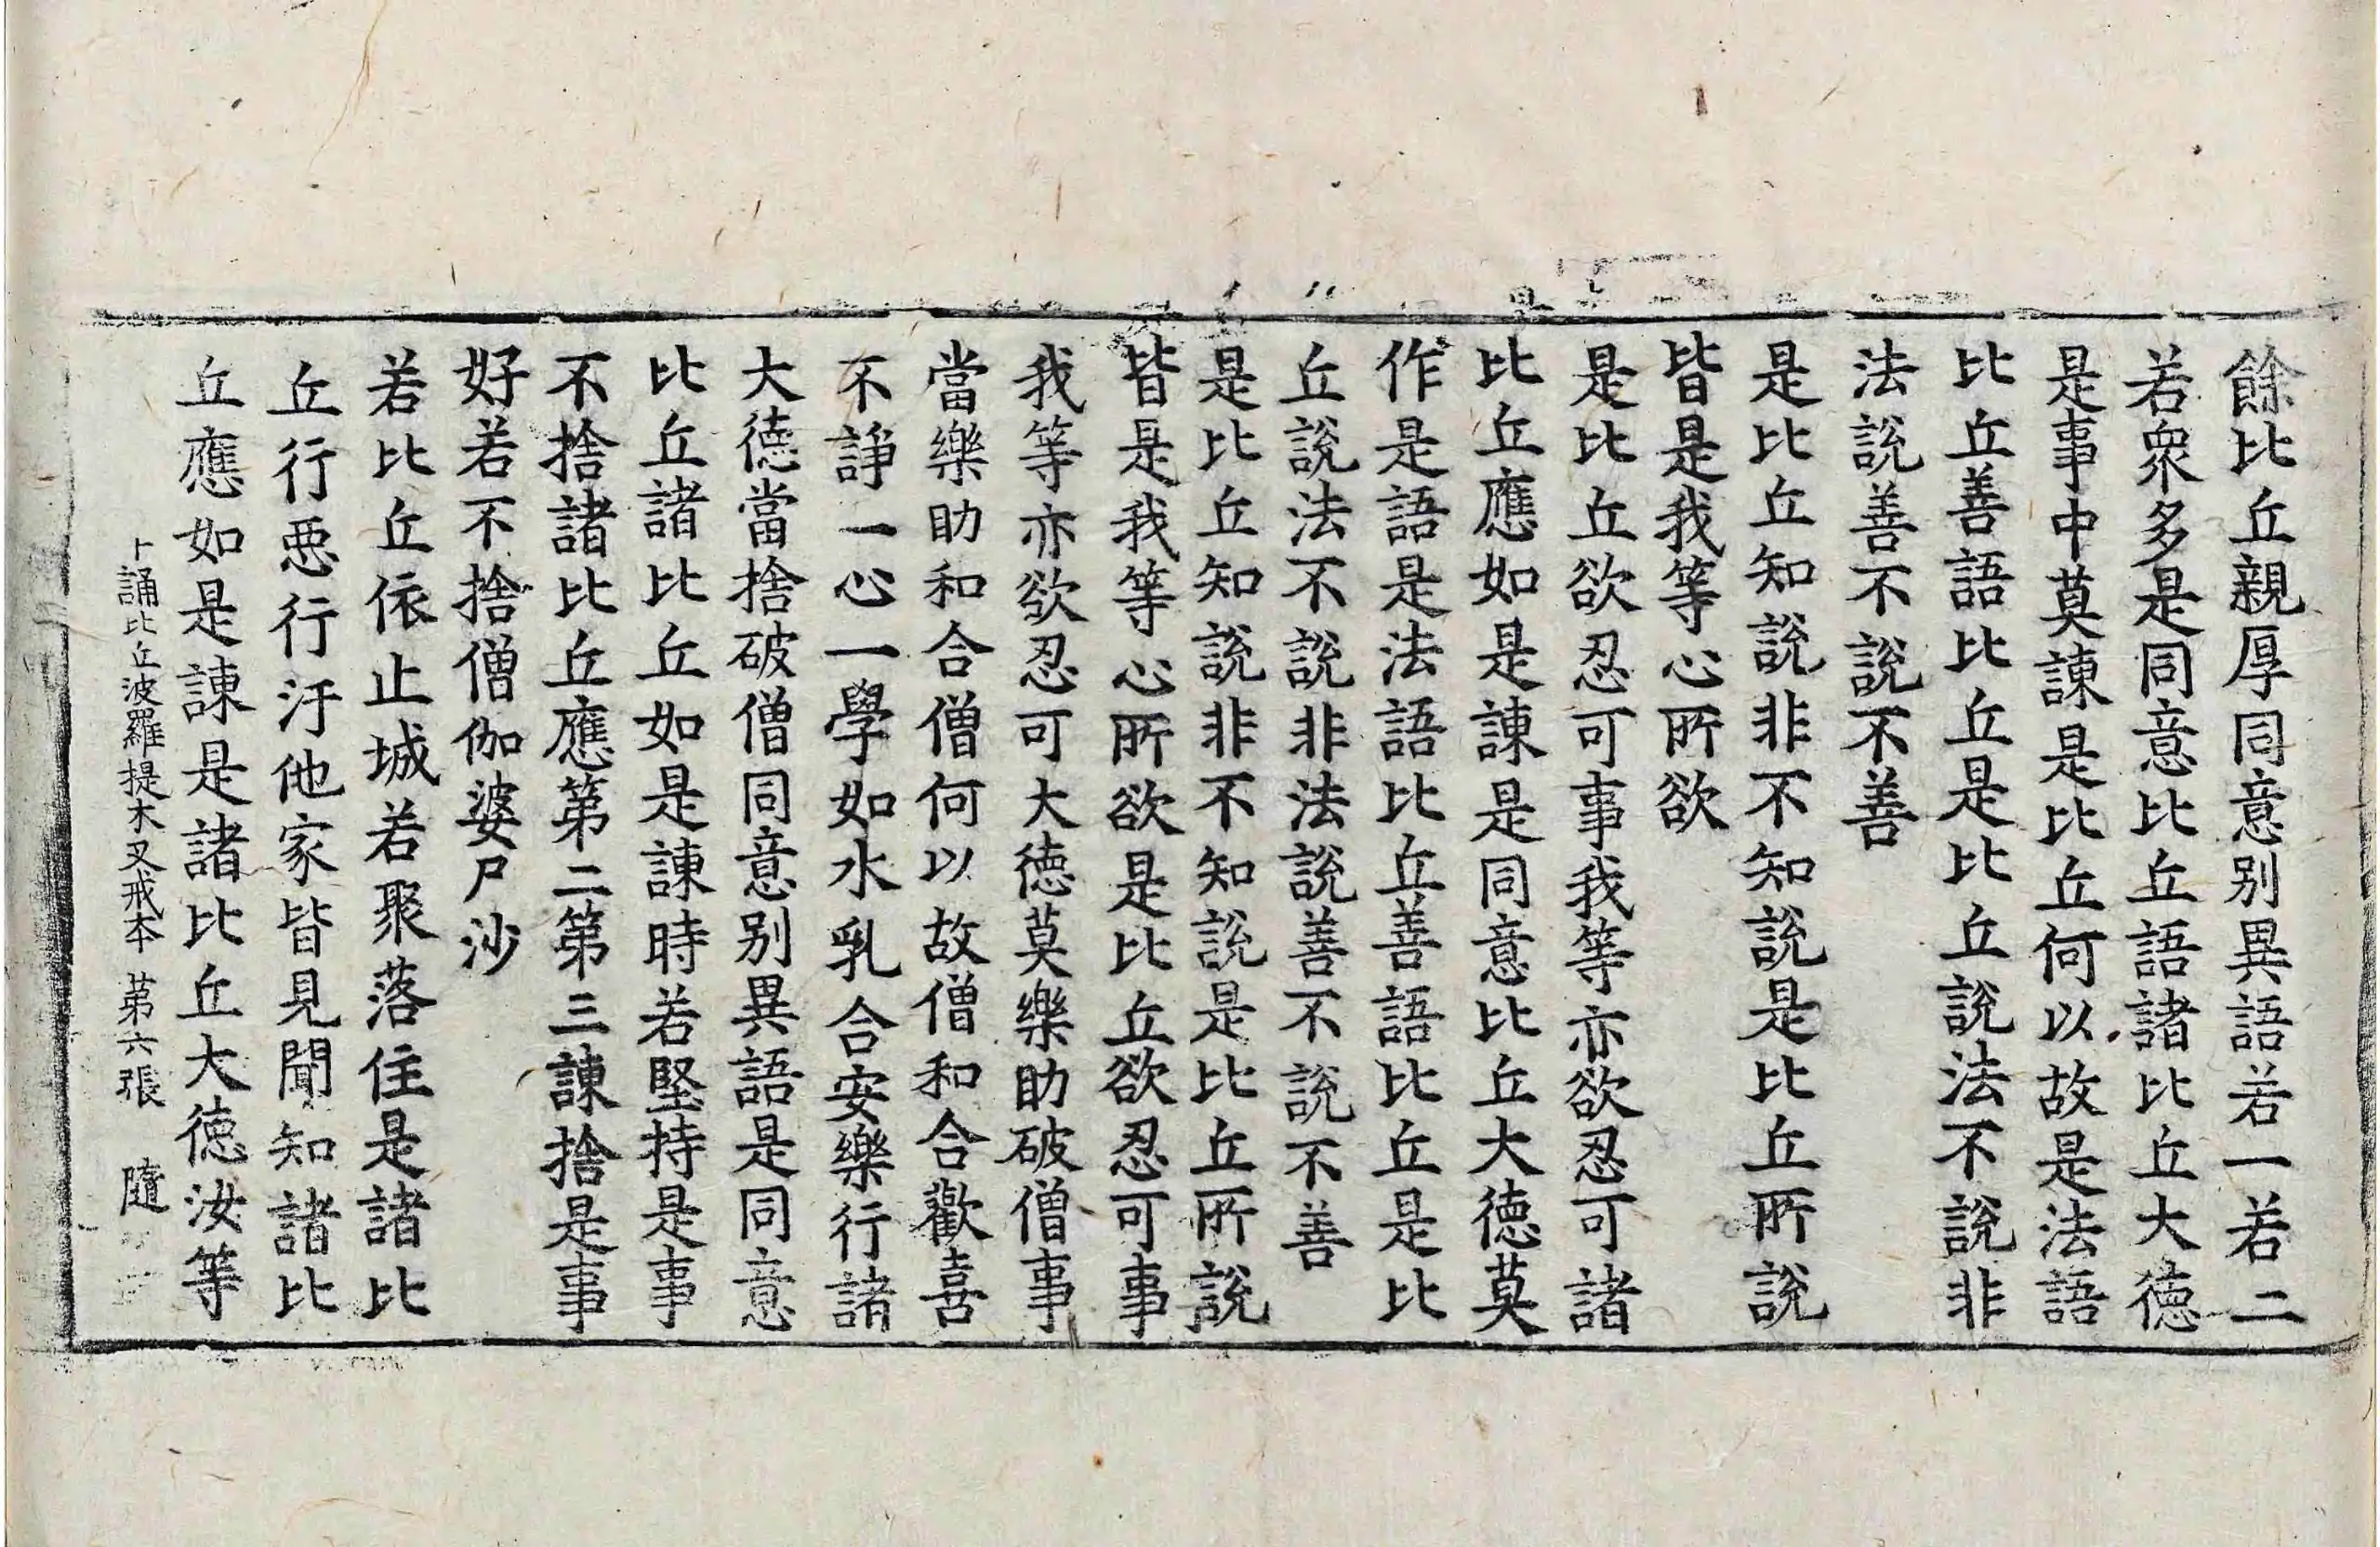 餘比丘親厚同意别異語若一若二
若衆多是同意比丘語諸比丘大德
是事中莫諫是比丘何以故是法語
比丘善語比丘是比丘說法不說非
法說善不說不善
是比丘知說非不知說是比丘所說
皆是我等心所欲
是比丘欲忍可事我等亦欲忍可諸
比丘應如是諫是同意比丘大德莫
作是語是法語比丘善語比丘是比
丘說法不說非法說善不說不善
是比丘知說非不知說是比丘所說
皆是我等心所欲是比丘欲忍可事
我等亦欲忍可大德莫樂助破僧事
當樂助和合僧何以故僧和合歡喜
不諍一心一學如水乳合安樂行諸
大德當捨破僧同意别異語是同意
比丘諸比丘如是諫時若堅持是事
不捨諸比丘應第二第三諫捨是事
好若不捨僧伽婆尸沙
若比丘依止城若聚落住是諸比
丘行惡行汙他家皆見聞知諸比
丘應如是諫是諸比丘大德汝等
誦比丘波羅提木叉戒本 第六張 隨